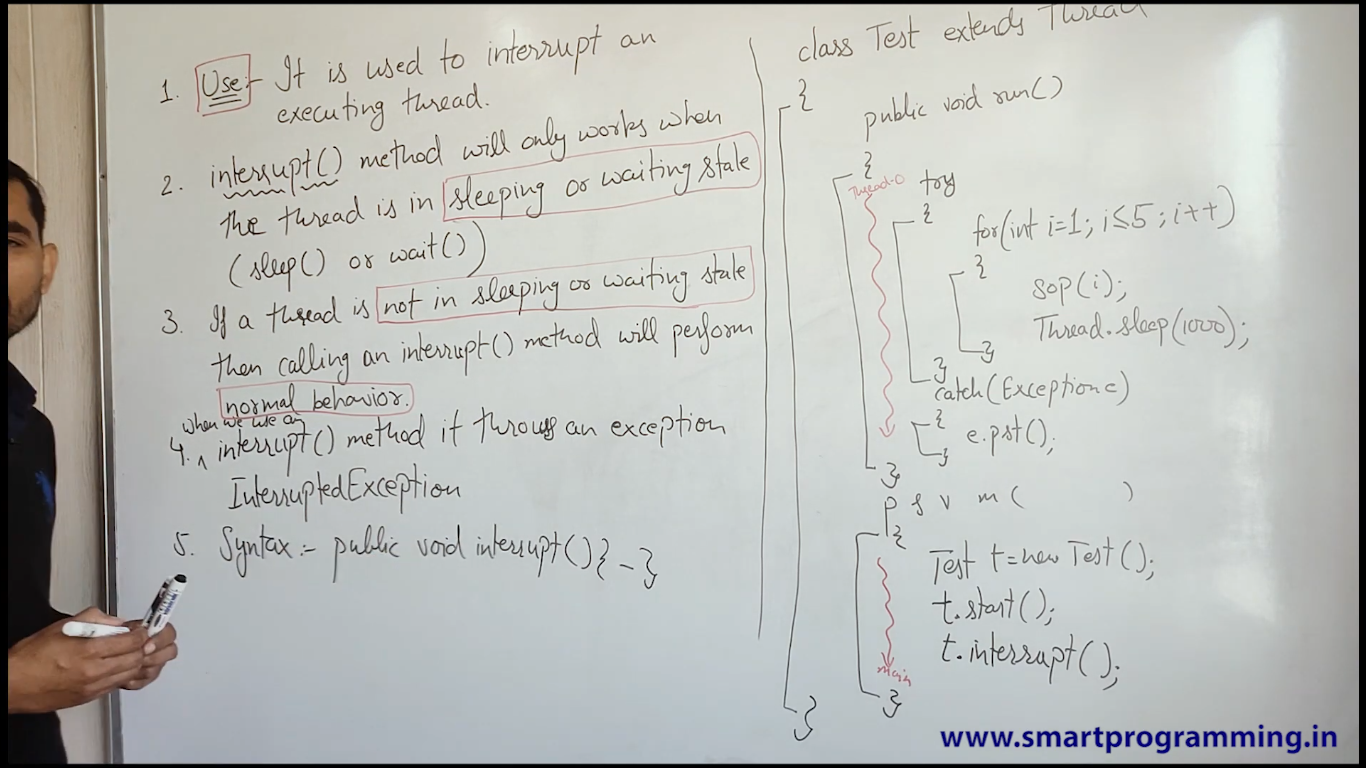 1. Use:- It is used to interrupt an
executing thread.
2. interrupt() method will only works when
the thread is in sleeping or waiting state
(sleep() or wait())
3. If a thread is not in sleeping or waiting state
then calling an interrupt() method will perform
normal behavior.
when we use an
4. ^ interrupt() method it throws an exception
InterruptedException
5. Syntax:- public void interrupt() { - }
class Test extends Thread
{
public void run()
{
Thread-0
try
{
for(int i=1; i≤5; i++)
{
sop(i);
Thread.sleep(1000);
}
}
catch(Exception e)
{
e.pst();
}
}
p s v m ( )
{
Test t=new Test();
t.start();
t.interrupt();
main
}
}
www.smartprogramming.in